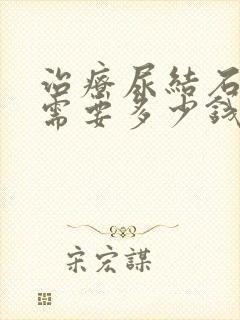 治療尿結石
需要多少錢
宋宏謀